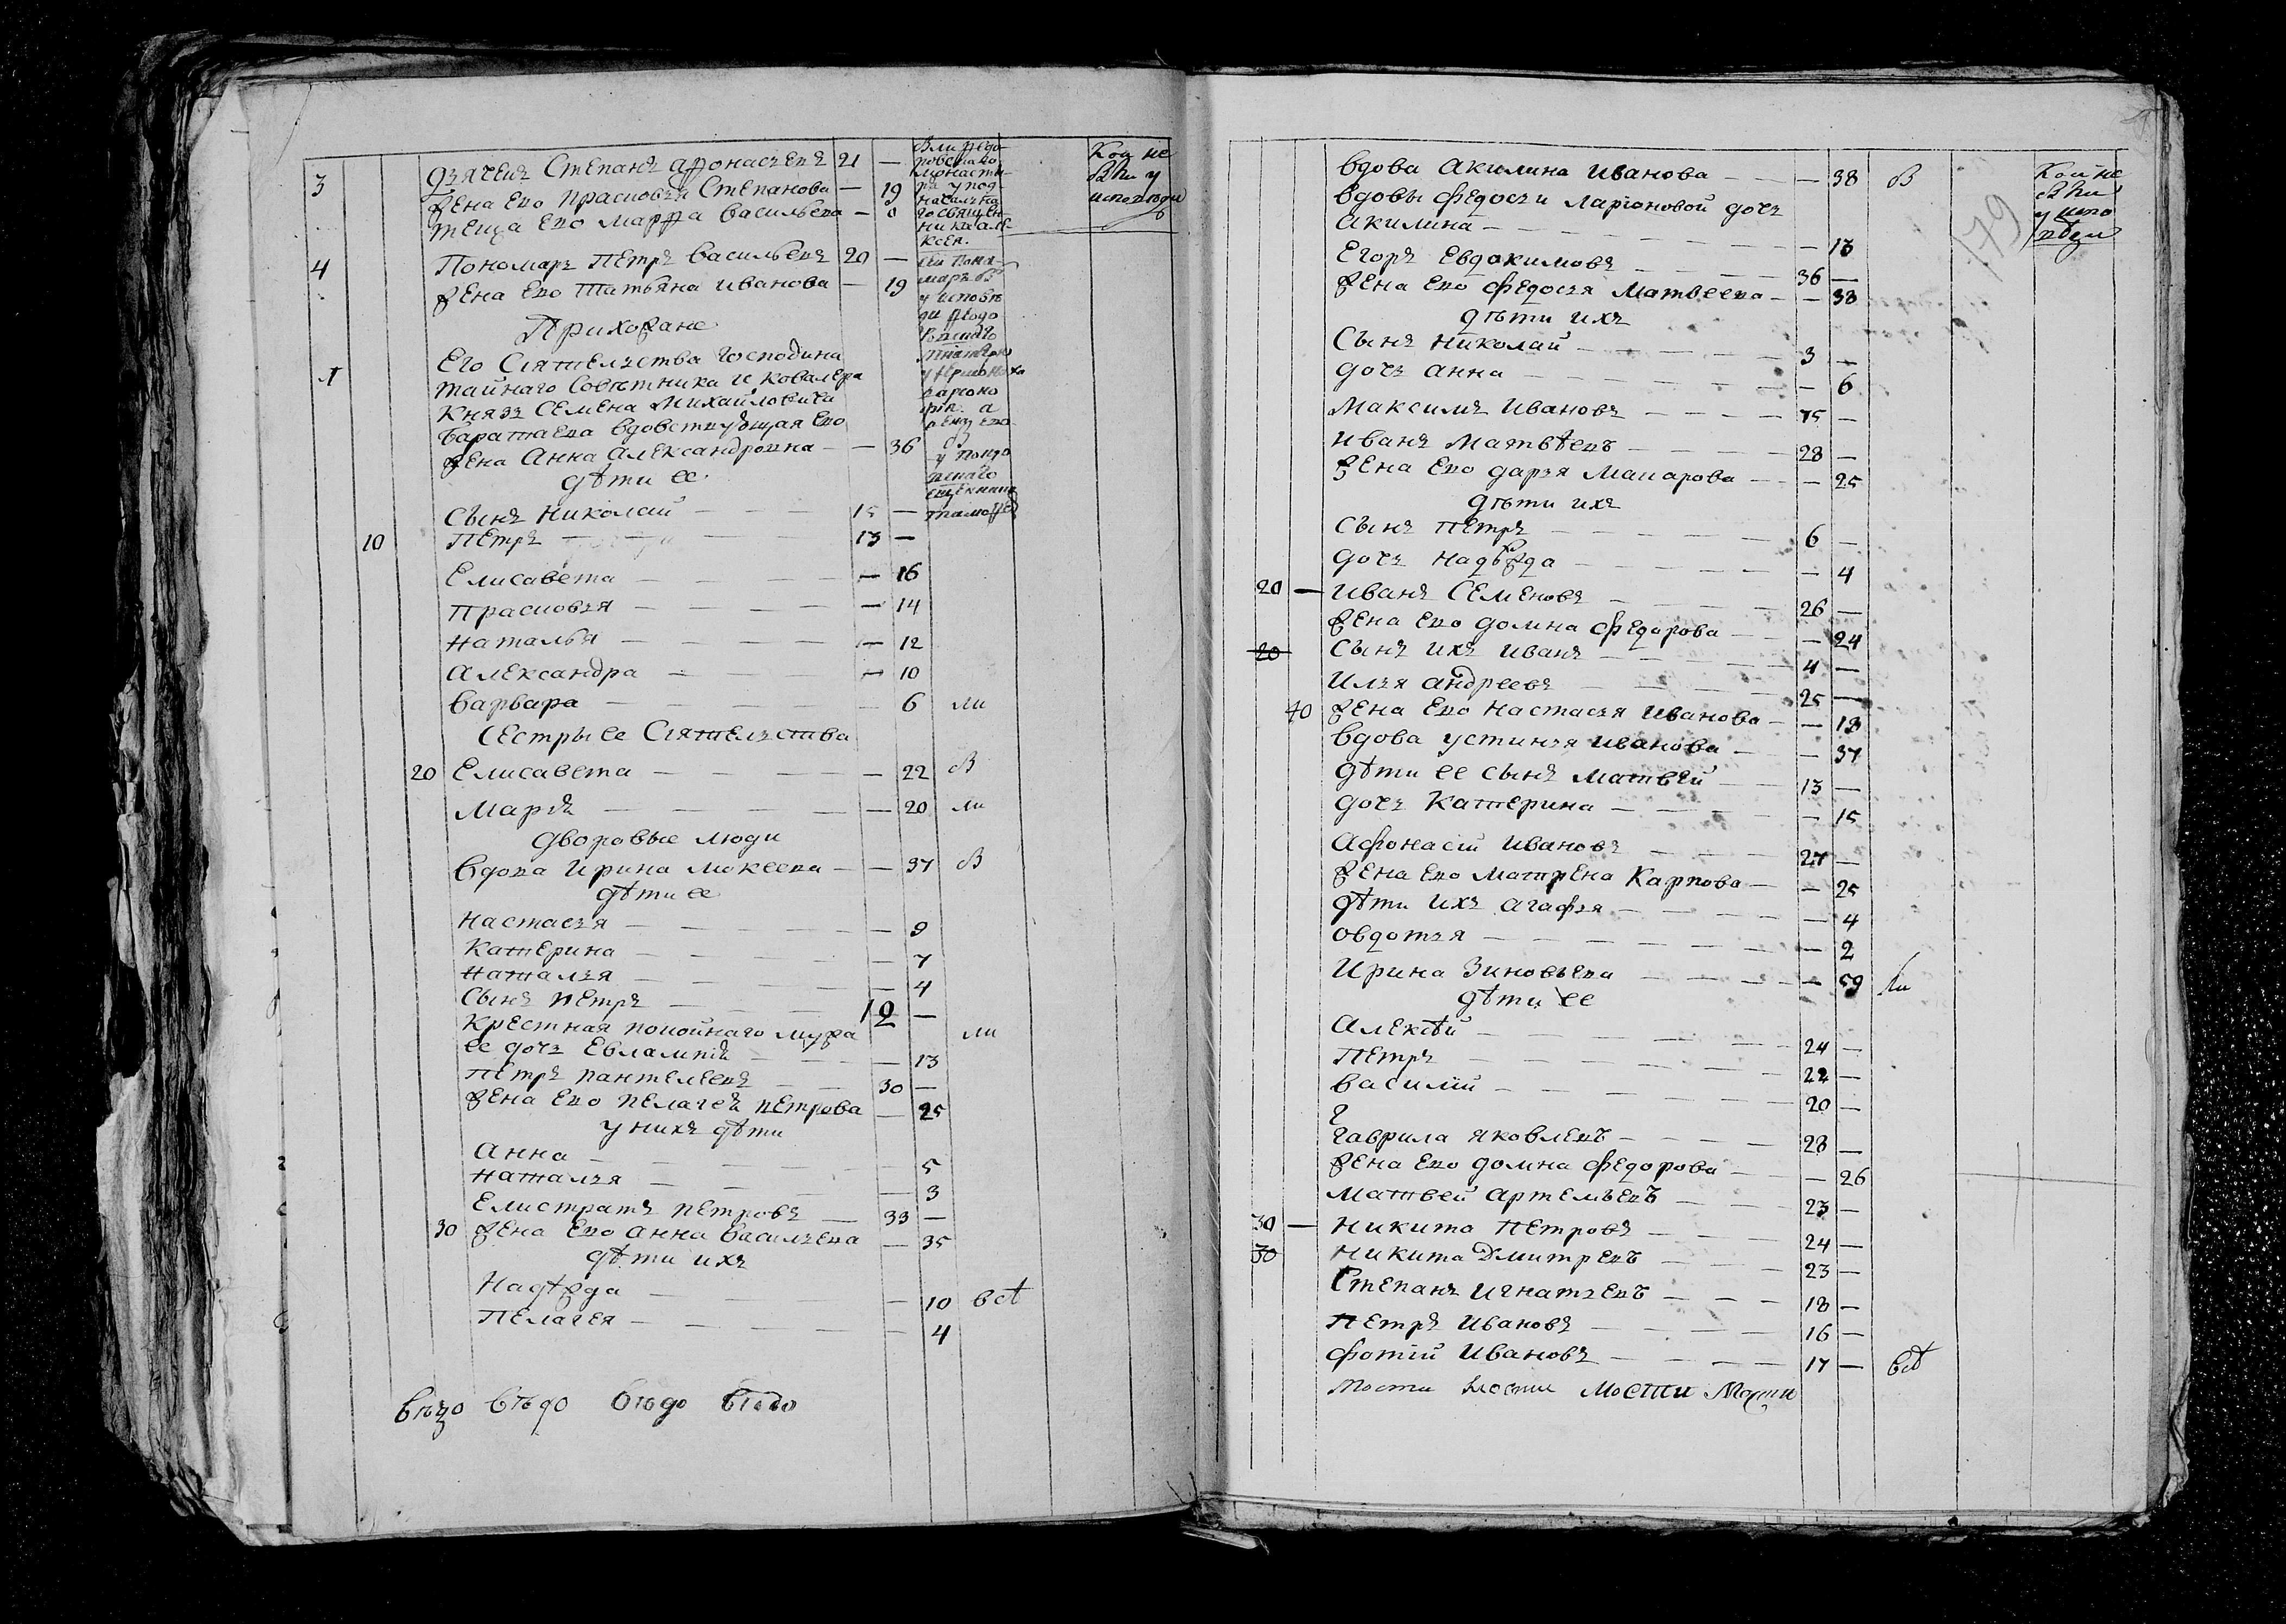 3 Дьячекъ Степанъ Афонасьевъ 21 —
Жена Ево Прасковья Степанова — 19
теща Ево Марфа Васильева —
4 Пономарь Петръ Васильевъ 20 —
Жена Ево Татьяна Иванова — 19
Прихожане
1 Его Сіятельства Господина
тайнаго Совѣтника и Кавалера
Князь Семена Михайловича
Баратаева вдовствующая Ево
Жена Анна Александровна — 36
дѣти ее
Сынъ Николай — 15 —
10 Петръ — 13 —
Елисавета — 16
Прасковья — 14
Наталья — 12
Александра — 10
Варвара — 6 ли
Сестры ее Сіятельства
20 Елисавета — 22 В
Марія — 20 ли
Дворовые люди
Вдова Ирина Мокеева — 37 В
дѣти ее
Настасья — 9
Катерина — 7
Наталья — 4
Сынъ Петръ — 12 —
Крестная покойнаго мужа ли
ее дочь Евлампія — 13
Петръ Пантелеевъ 30 —
Жена Ево Пелагея Петрова — 25
у нихъ дѣти
Анна — 5
Наталья — 3
Елистратъ Петровъ — 33 —
30 Жена Ево Анна Васильева — 35
дѣти ихъ
Надѣжда — 10 всѣ
Пелагея — 4
вѣдо вѣдо вѣдо вѣдо
Кои не
были у
исповѣди
Вдова Акилина Иванова — 38 В
Вдовы Федосьи Ларіоновой дочь
Акилина — 18
Егоръ Евдокимовъ 36 —
Жена Ево Федосья Матвеева — 38
дѣти ихъ
Сынъ Николай — 3 —
дочь Анна — 6
Максимъ Ивановъ — 75 —
Иванъ Матвѣевъ 28 —
Жена Ево Дарья Макарова — 25
дѣти ихъ
Сынъ Петръ — 6 —
дочь Надѣжда — 4
20 — Иванъ Семеновъ 26 —
Жена Ево Домна Федорова — 24
20 Сынъ ихъ Иванъ — 4 —
Илья Андреевъ — 25 —
40 Жена Ево Настасья Иванова — 18
Вдова Устинья Иванова — 37
дѣти ее Сынъ Матвей — 13 —
дочь Катерина — 15
Афонасій Ивановъ — 27 —
Жена Ево Матрена Карпова — 25
дѣти ихъ Агафья — 4
Овдотья — 2
Ирина Зиновьева — 59 ли
дѣти ее
Алексѣй — 24 —
Петръ — 22 —
Василій — 20 —
Г
Гаврила Яковлевъ — 28 —
Жена Ево Домна Федорова — 26
Матвей Артемьевъ — 23 —
30 — Никита Петровъ — 24 —
30 Никита Дмитревъ — 23 —
Степанъ Игнатьевъ — 18 —
Петръ Ивановъ — 16 —
Фотій Ивановъ — 17 — всѣ
Мости Мости Мости Мости
Кои не
были
у испо
вѣди
179